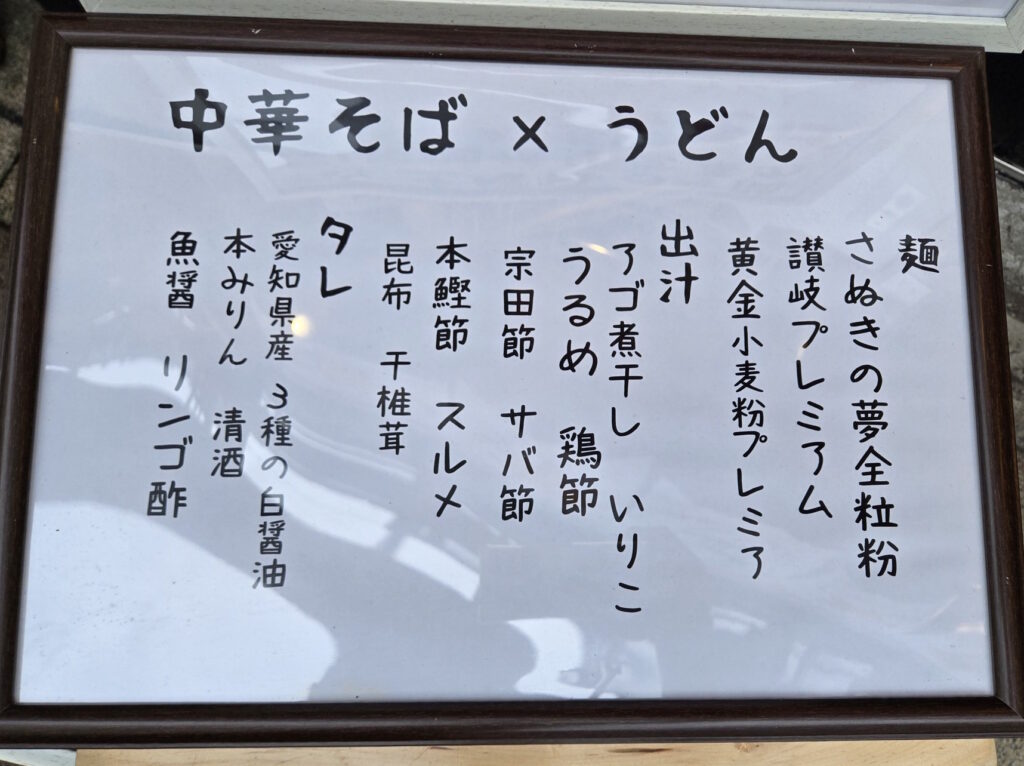 中華そば × うどん
麺
さぬきの夢全粒粉
讃岐プレミアム
黄金小麦粉プレミア
出汁
アゴ煮干し いりこ
うるめ 鶏節
宗田節 サバ節
本鰹節 スルメ
昆布 干椎茸
タレ
愛知県産 3種の白醤油
本みりん 清酒
魚醤 リンゴ酢